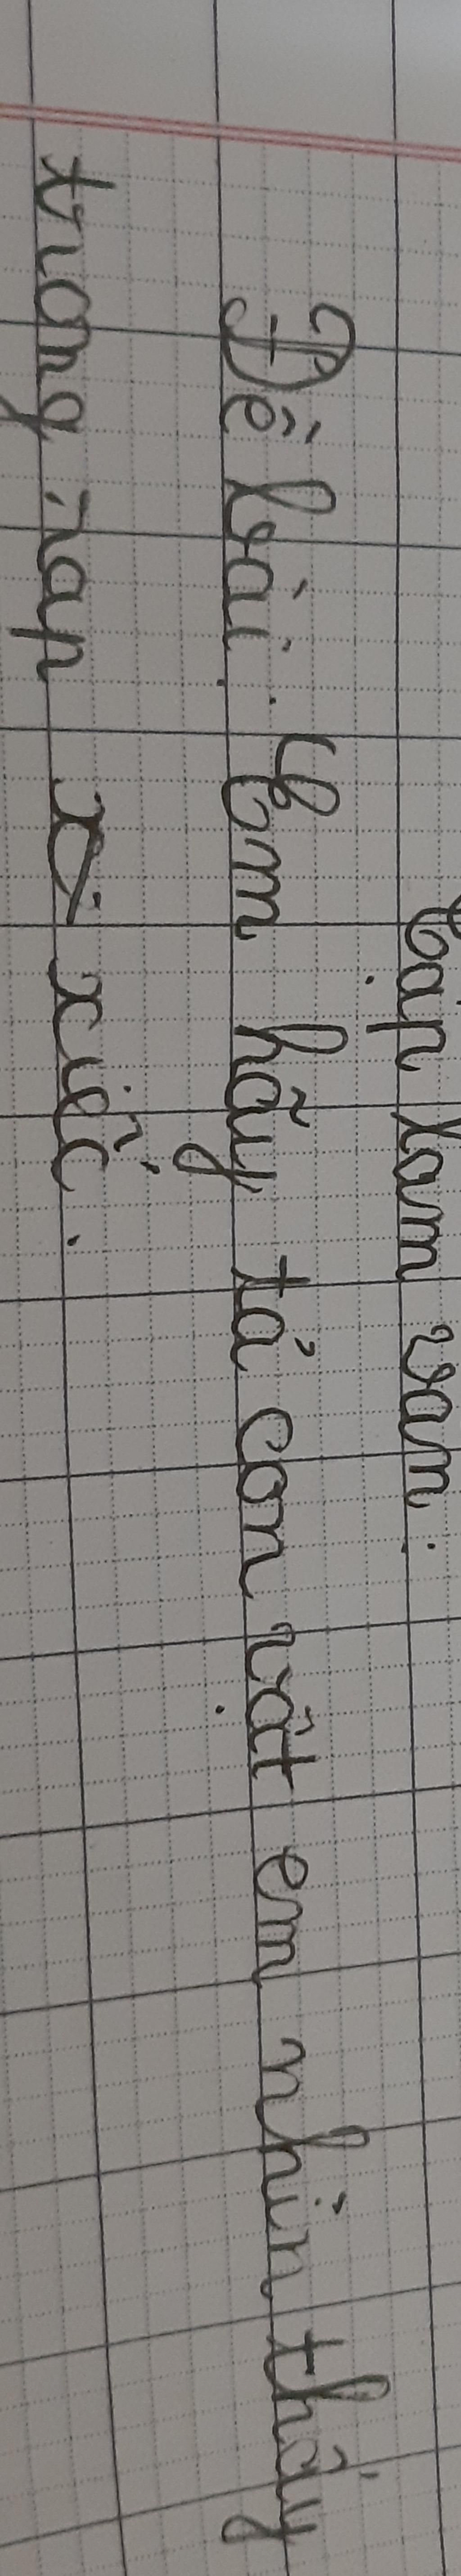 Tập làm văn.
Đề bài. Em hãy tả con vật em nhìn thấy
trong rạp xiếc.